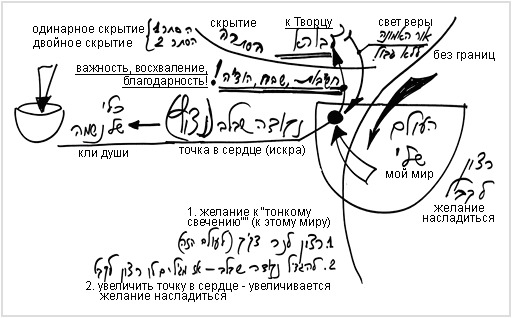 одинарное скрытие
двойное скрытие
הסתר 1
הסתר 2
скрытие
הסתרה
к Творцу
לבורא
свет веры
אור האמונה
ללא גבול
без границ
важность, восхваление,
благодарность!
חשיבות, שבח, הודיה!
כלי
של נשמה
кли души
נקודה שבלב (ניצוץ)
точка в сердце (искра)
העולם
שלי
мой мир
רצון
לקבל
желание
насладиться
1. желание к "тонкому
свечению"" (к этому миру)
1. רצון לנר דקיק (לעולם הזה)
2. להגדיל נקודה שבלב – אז מגדילים לו רצון לקבל
2. увеличить точку в сердце - увеличивается
желание насладиться